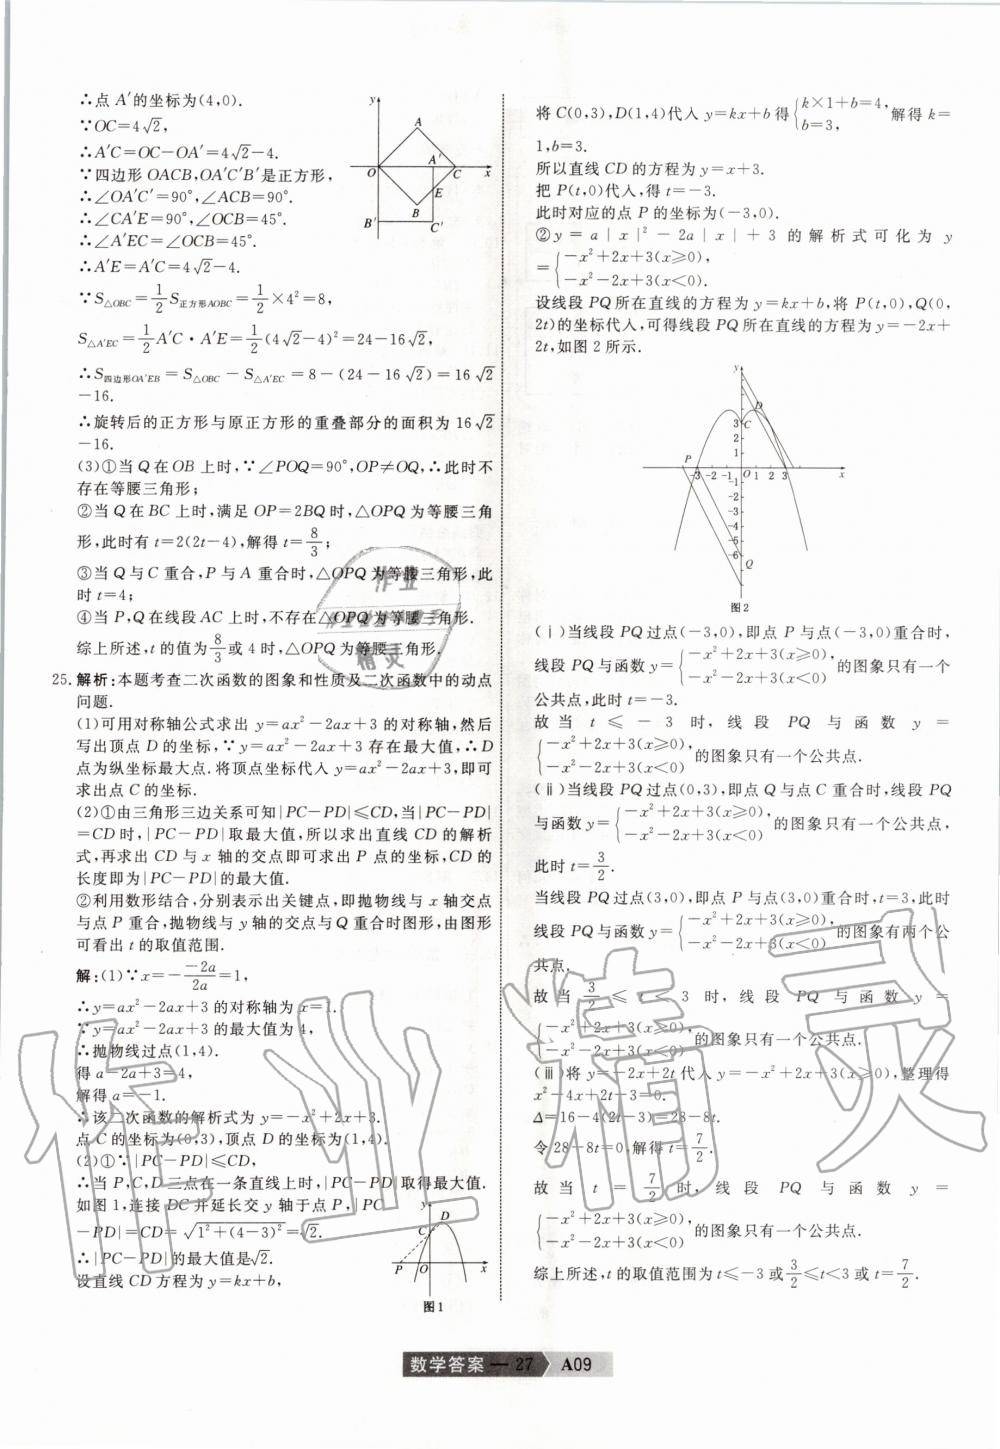 ∴点 A′的坐标为(4,0).
∵OC=4√2,
∴A′C=OC-OA′=4√2-4.
∵四边形 OACB,OA′C′B′是正方形,
∴∠OA′C′=90°,∠ACB=90°.
∴∠CA′E=90°,∠OCB=45°.
∴∠A′EC=∠OCB=45°.
∴A′E=A′C=4√2-4.
∵S△OBC=1/2 S正方形AOBC=1/2×4²=8,
S△A′EC=1/2 A′C·A′E=1/2(4√2-4)²=24-16√2,
∴S四边形OA′EB=S△OBC-S△A′EC=8-(24-16√2)=16√2
-16.
∴旋转后的正方形与原正方形的重叠部分的面积为 16√2
-16.
(3)①当 Q 在 OB 上时,∵∠POQ=90°,OP≠OQ,∴此时不
存在等腰三角形;
②当 Q 在 BC 上时,满足 OP=2BQ 时,△OPQ 为等腰三角
形,此时有 t=2(2t-4),解得 t=8/3;
③当 Q 与 C 重合,P 与 A 重合时,△OPQ 为等腰三角形,此
时 t=4;
④当 P,Q 在线段 AC 上时,不存在△OPQ 为等腰三角形.
综上所述,t 的值为8/3或 4 时,△OPQ 为等腰三角形.
25. 解析:本题考查二次函数的图象和性质及二次函数中的动点
问题.
(1)可用对称轴公式求出 y=ax²-2ax+3 的对称轴,然后
写出顶点 D 的坐标,∵y=ax²-2ax+3 存在最大值,∴D
点为纵坐标最大点.将顶点坐标代入 y=ax²-2ax+3,即可
求出点 C 的坐标.
(2)①由三角形三边关系可知|PC-PD|≤CD,当|PC-PD|
=CD 时,|PC-PD|取最大值,所以求出直线 CD 的解析
式,再求出 CD 与 x 轴的交点即可求出 P 点的坐标,CD 的
长度即为|PC-PD|的最大值.
②利用数形结合,分别表示出关键点,即抛物线与 x 轴交点
与点 P 重合,抛物线与 y 轴的交点与 Q 重合时图形,由图形
可看出 t 的取值范围.
解:(1)∵x=-(-2a)/(2a)=1,
∴y=ax²-2ax+3 的对称轴为 x=1.
∵y=ax²-2ax+3 的最大值为 4,
∴抛物线过点(1,4).
得 a-2a+3=4,
解得 a=-1.
∴该二次函数的解析式为 y=-x²+2x+3.
点 C 的坐标为(0,3),顶点 D 的坐标为(1,4).
(2)①∵|PC-PD|≤CD,
∴当 P,C,D 三点在一条直线上时,|PC-PD|取得最大值.
如图 1,连接 DC 并延长交 y 轴于点 P,|PC
-PD|=CD=√(1²+(4-3)²)=√2.
∴|PC-PD|的最大值是√2.
设直线 CD 方程为 y=kx+b,
y
A
A′
O
C
x
E
B
B′
C′
y
D
C
P
O
x
图1
将 C(0,3),D(1,4)代入 y=kx+b 得{k×1+b=4, b=3, 解得 k=
1,b=3.
所以直线 CD 的方程为 y=x+3.
把 P(t,0)代入,得 t=-3.
此时对应的点 P 的坐标为(-3,0).
②y=a|x|²-2a|x|+3 的解析式可化为 y
={-x²+2x+3(x≥0), -x²-2x+3(x<0).
设线段 PQ 所在直线的方程为 y=kx+b,将 P(t,0),Q(0,
2t)的坐标代入,可得线段 PQ 所在直线的方程为 y=-2x+
2t,如图 2 所示.
y
D
3
C
2
1
P
-3 -2 -1 O 1 2 3
x
-1
-2
-3
-4
-5
-6
Q
图2
(ⅰ)当线段 PQ 过点(-3,0),即点 P 与点(-3,0)重合时,
线段 PQ 与函数 y={-x²+2x+3(x≥0) -x²-2x+3(x<0) 的图象只有一个
公共点,此时 t=-3.
故当 t≤-3 时,线段 PQ 与函数 y=
{-x²+2x+3(x≥0), -x²-2x+3(x<0) 的图象只有一个公共点.
(ⅱ)当线段 PQ 过点(0,3),即点 Q 与点 C 重合时,线段 PQ
与函数 y={-x²+2x+3(x≥0), -x²-2x+3(x<0) 的图象只有一个公共点,
此时 t=3/2.
当线段 PQ 过点(3,0),即点 P 与点(3,0)重合时,t=3,此时
线段 PQ 与函数 y={-x²+2x+3(x≥0), -x²-2x+3(x<0) 的图象有两个公
共点.
故当 3/2≤t<3 时,线段 PQ 与函数 y=
{-x²+2x+3(x≥0), -x²-2x+3(x<0) 的图象只有一个公共点.
(ⅲ)将 y=-2x+2t 代入 y=-x²+2x+3(x≥0),整理得
x²-4x+2t-3=0.
Δ=16-4(2t-3)=28-8t.
令 28-8t=0,解得 t=7/2.
故当 t=7/2 时,线段 PQ 与函数 y=
{-x²+2x+3(x≥0), -x²-2x+3(x<0) 的图象只有一个公共点.
综上所述,t 的取值范围为 t≤-3 或3/2≤t<3 或 t=7/2.
数学答案 — 27 A09
作业精灵
作业精灵